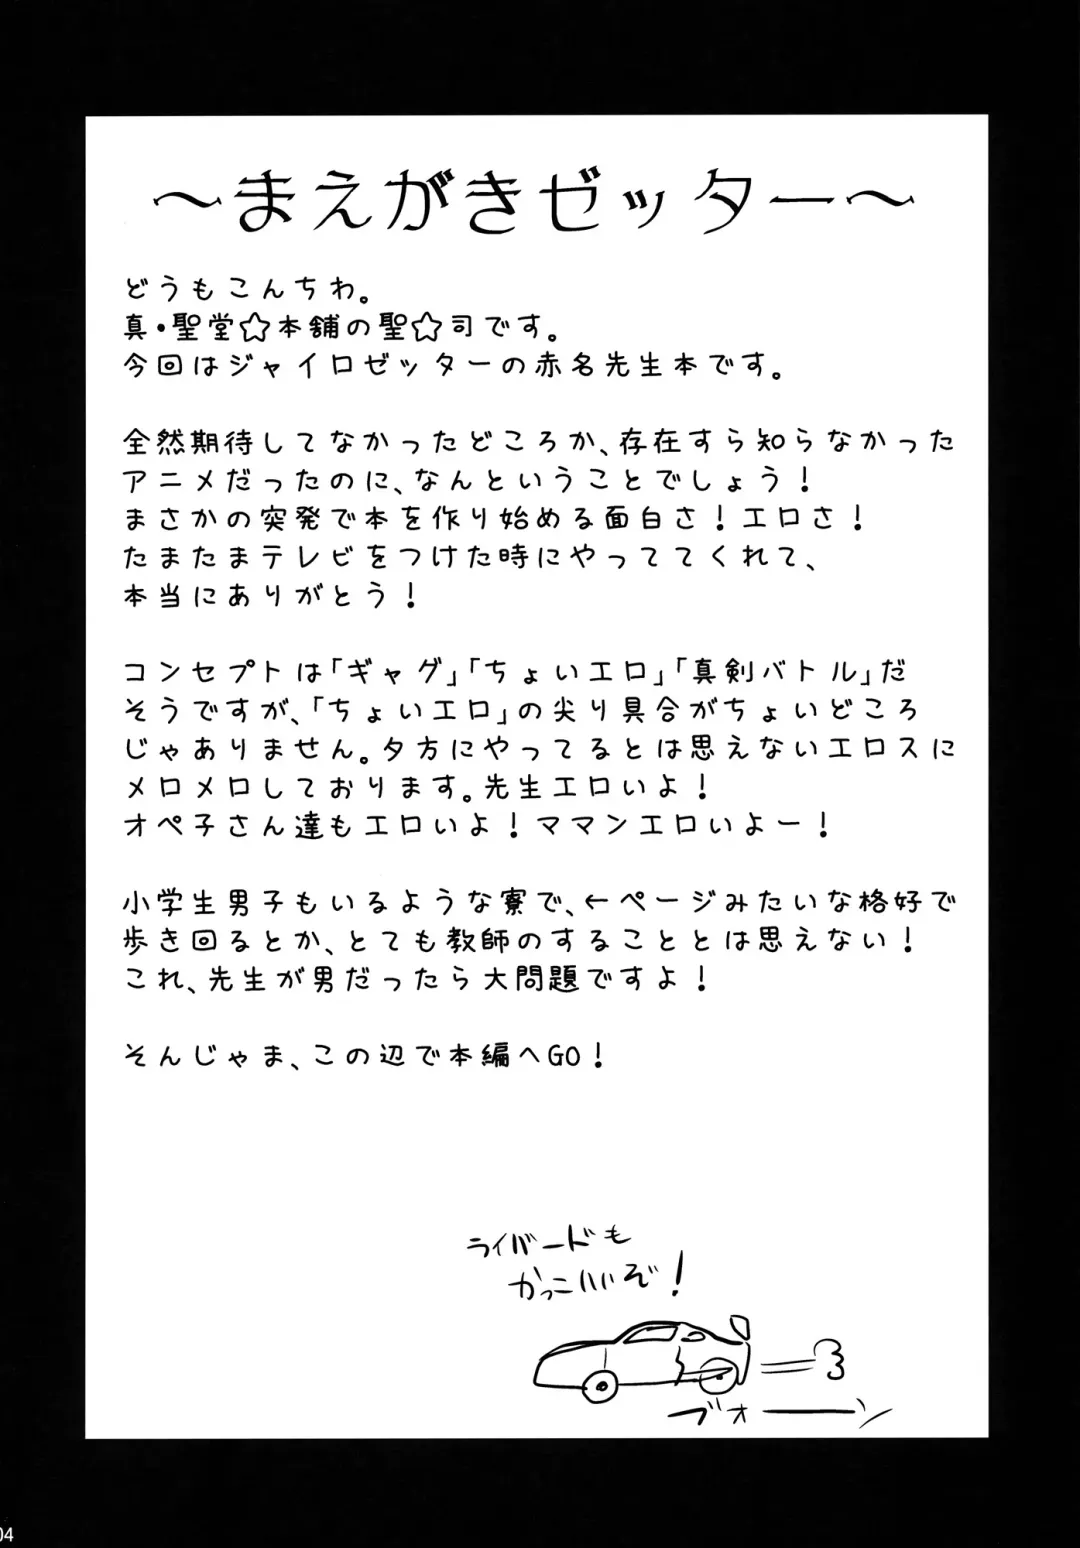 ～まえがきゼッター～
どうもこんちわ。
真・聖堂☆本舗の聖☆司です。
今回はジャイロゼッターの赤名先生本です。
全然期待してなかったどころか、存在すら知らなかった
アニメだったのに、なんということでしょう！
まさかの突発で本を作り始める面白さ！エロさ！
たまたまテレビをつけた時にやっててくれて、
本当にありがとう！
コンセプトは「ギャグ」「ちょいエロ」「真剣バトル」だ
そうですが、「ちょいエロ」の尖り具合がちょいどころ
じゃありません。夕方にやってるとは思えないエロスに
メロメロしております。先生エロいよ！
オペ子さん達もエロいよ！ママンエロいよー！
小学生男子もいるような寮で、←ページみたいな格好で
歩き回るとか、とても教師のすることとは思えない！
これ、先生が男だったら大問題ですよ！
そんじゃま、この辺で本編へGO！
ライバードも
かっこいいぞ！
ブォーーン
04